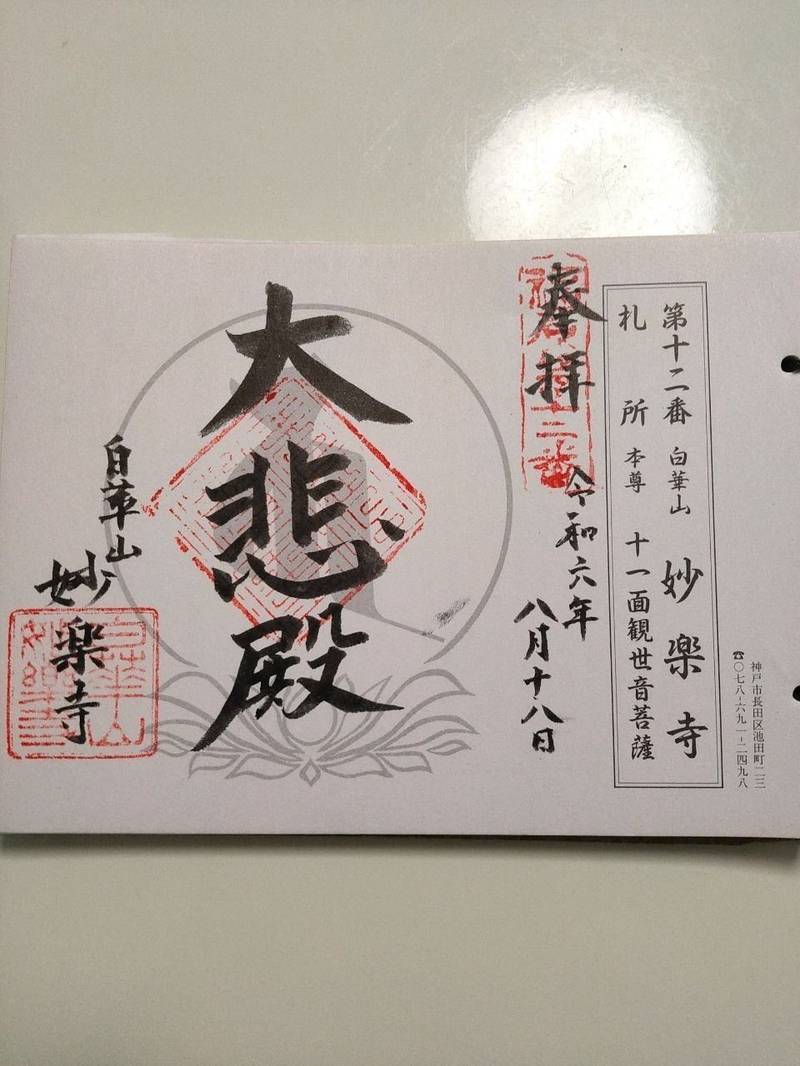 第十二番 白華山 妙楽寺
札所 本尊 十一面観世音菩薩
神戸市長田区池田町二三
☎〇七八-六九一-二四九八
奉拝
令和六年
八月十八日
大悲殿
白華山
妙楽寺